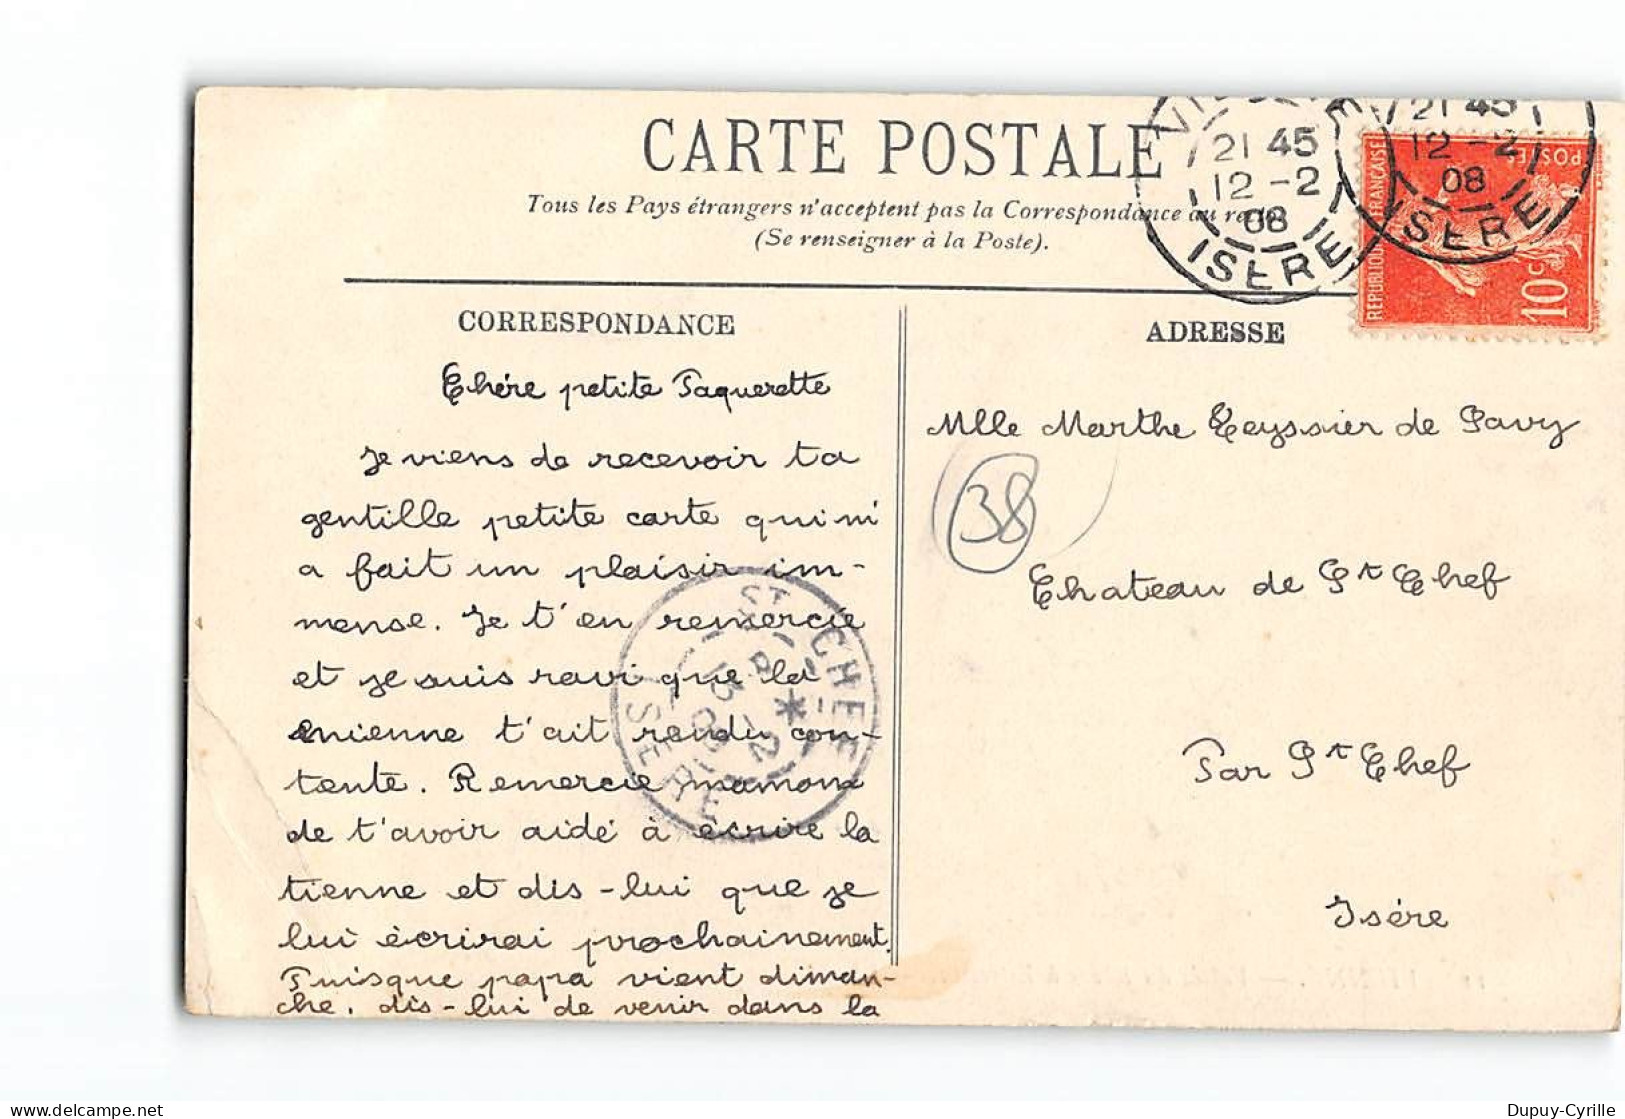 CARTE POSTALE
Tous les Pays étrangers n'acceptent pas la Correspondance au
(Se renseigner à la Poste).
21 45
12 -2
08
ISERE
21 45
12 -2
08
ISERE
REPUBLIQUE FRANCAISE
POSTES
10c
CORRESPONDANCE
Chére petite Paquerette
Je viens de recevoir ta
gentille petite carte qui m'
a fait un plaisir im-
mense. Je t'en remercie
et je suis ravi que la
mienne t'ait rendu con-
tente. Remercie maman
de t'avoir aidé à écrire la
tienne et dis-lui que je
lui écrirai prochainement.
Puisque papa vient diman-
che, dis-lui de venir dans la
ADRESSE
Mlle Marthe Teyssier de Savy
38
Chateau de St Chef
Par St Chef
Isére
ST CHEF
13 -2
08
ISERE
Dupuy-Cyrille